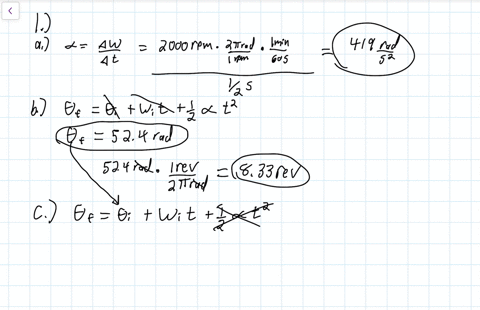 1.)
a.) α = ΔW/Δt = 2000 rpm · 2π rad/1 rpm · 1 min/60 s / 1/2 s = 419 rad/s²
b.) θf = θi + Wi t + 1/2 α t²
θf = 52.4 rad
524 rad · 1 rev/2π rad = 8.33 rev
c.) θf = θi + Wi t + 1/2 α t²